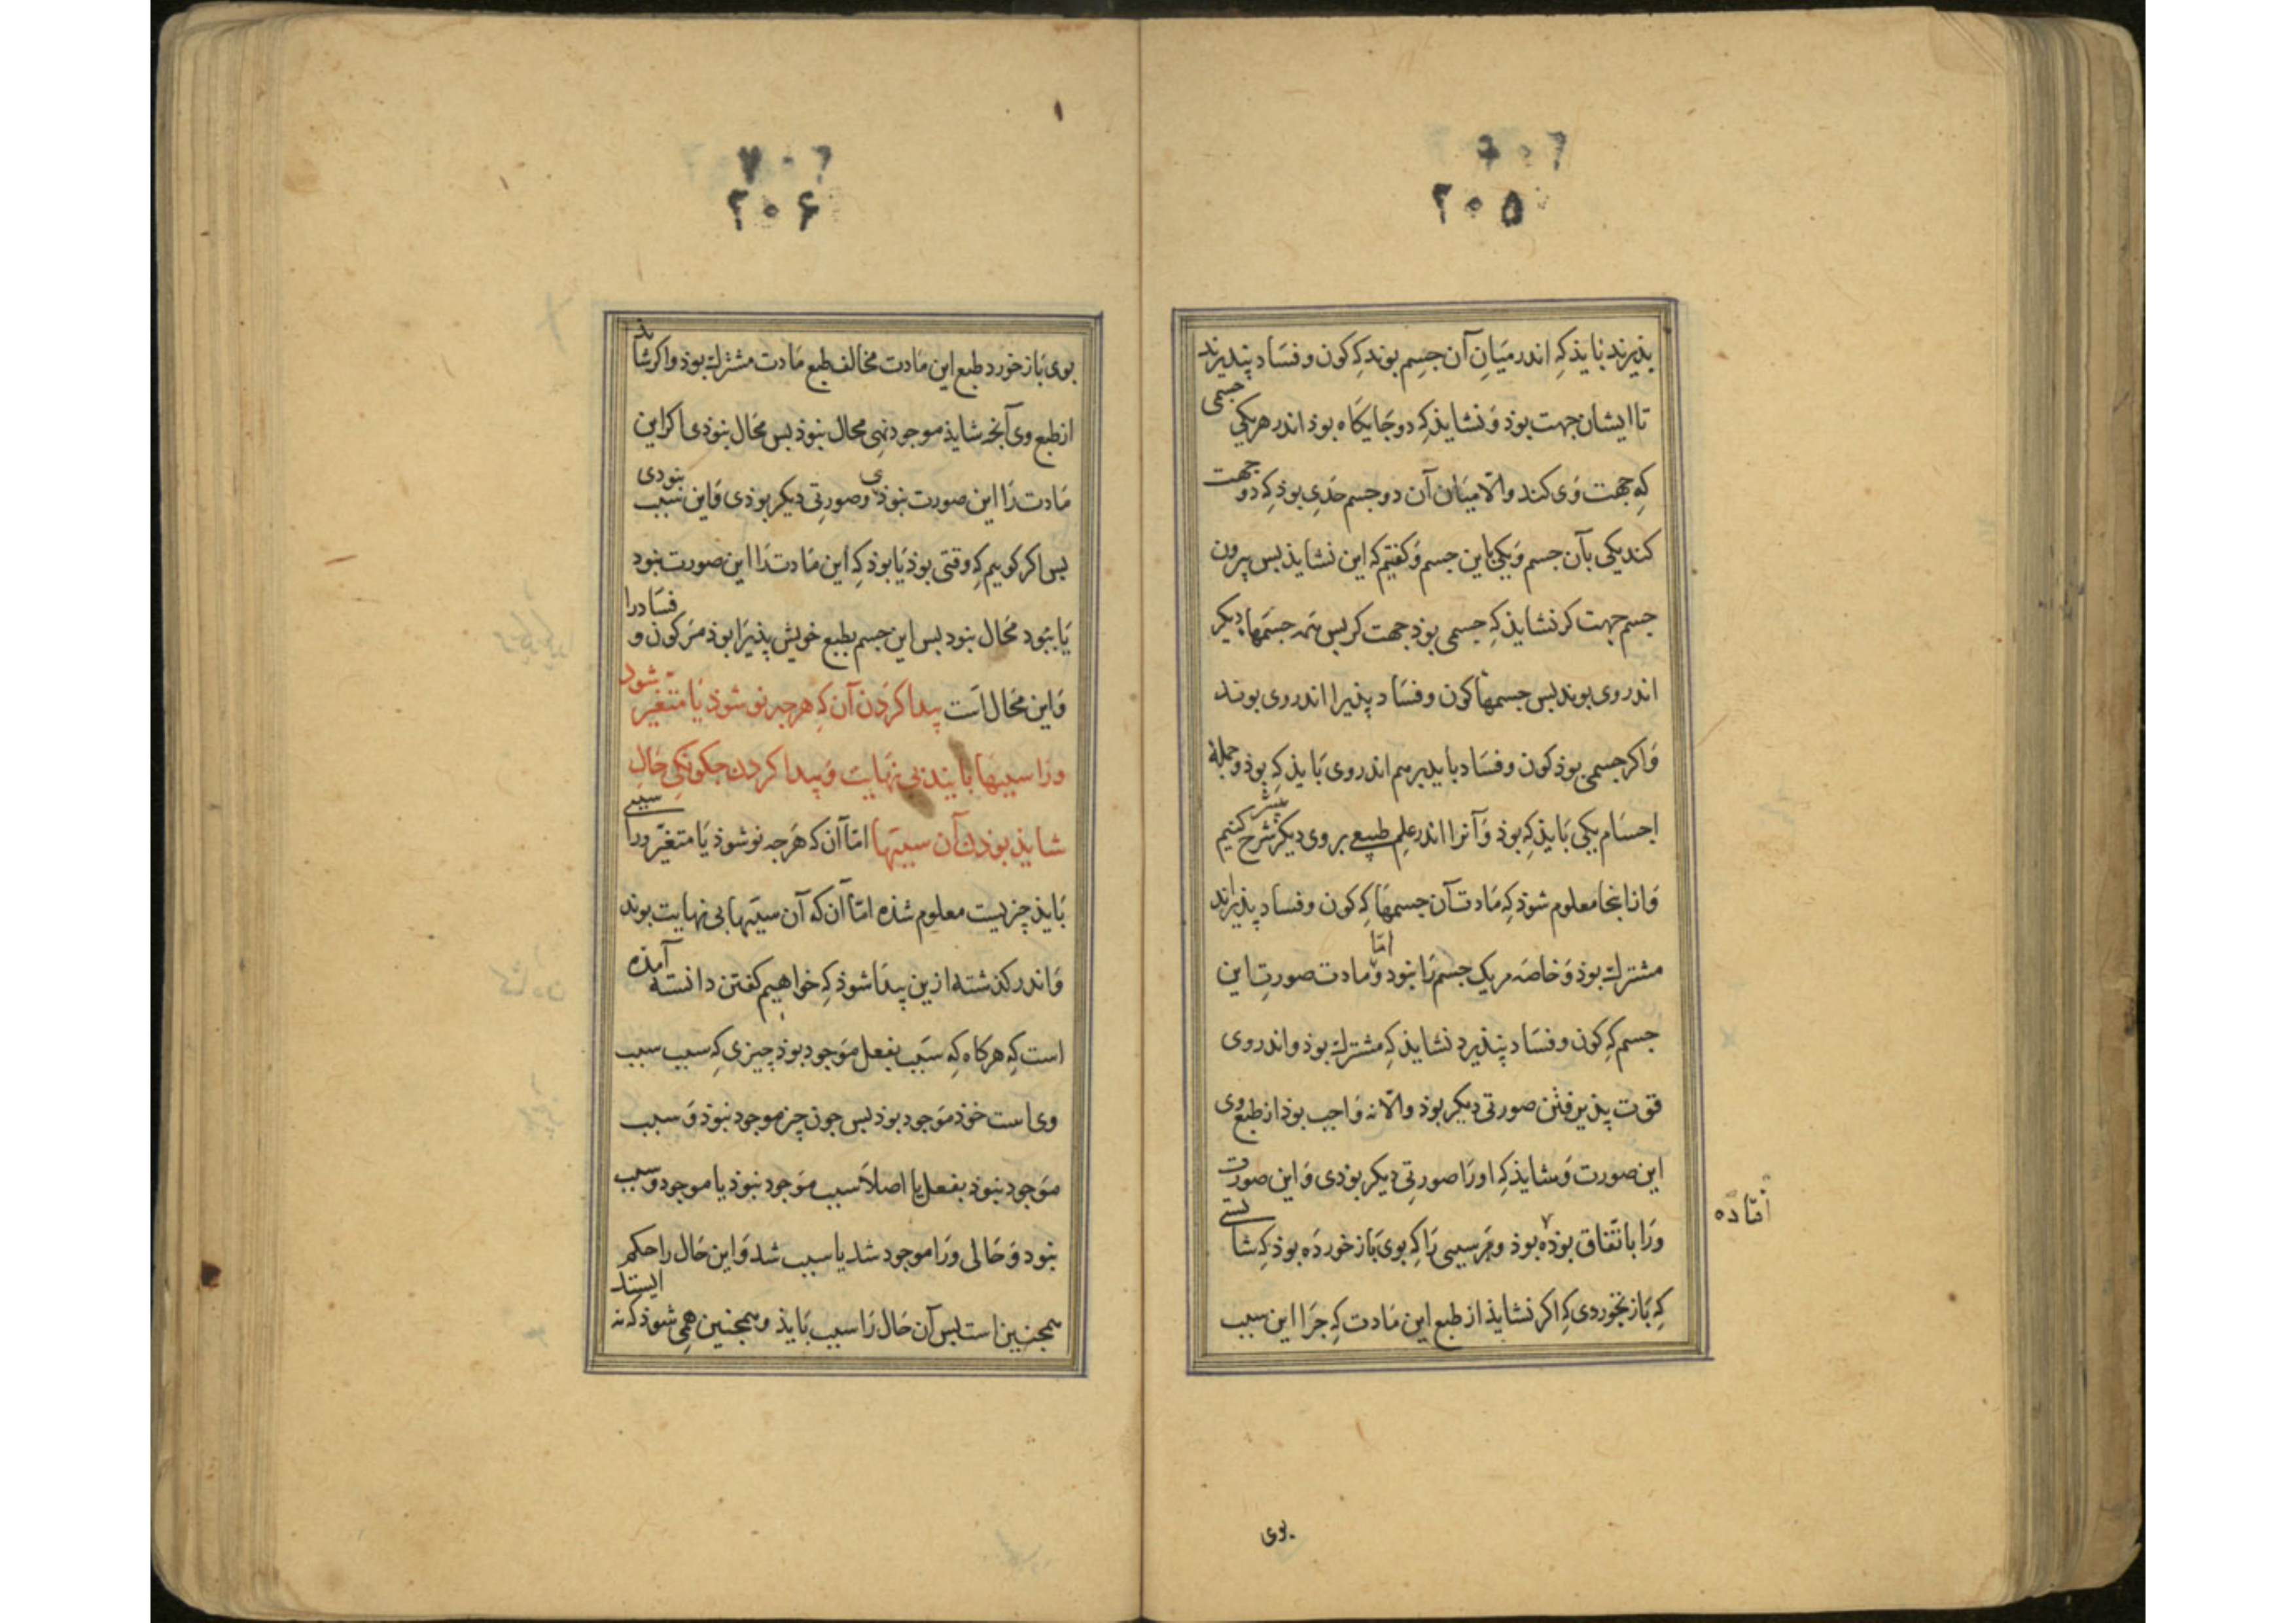 ۲۰۶
۲۰۵
پذیرند نایذ کِه اندر میَانِ آن جسِم بوند کِه کون و فسَاد پنذیرند
تا ایشان جهت بوذ وَ نشایذ کِه دو جَایکَاه بوذ اندر هر یکی جسمی
کِه جهت وَی کند والّا میَان آن دو جسم حَدی بوذ کِه دو جهت
کند یکی بآن جسم وَ یکی باین جسم وَ کفتیم که این نشایذ بس بیرون
جسم جهت کر نشایذ کِه جسمی بوذ جهت کر بس همه جسمهاء دیکر
اندر وی بوند بس جسمهاء کون و فسَاد پذیرا اندر وی بوند
وَ اکر جسمی بوذ کون و فسَاد ناپذیر هم اندر وی بَایذ کِه بوذ و جملهٔ
اجسَام یکی بَایذ کِه بوذ وَ آنرا اندر علِم طبیعی بر وی دیکر بیشتر شرح کنیم
وَ از اینجا معلوم شوذ کِه مَادت آن جسمهَا کِه کون و فسَاد پذیراند
مشترك بوذ وَ خاصّه مر یک جسم رَا نبود وَ امّا مادت صورتِ این
جسم کِه کون و فسَاد پنذیرد نشایذ کِه مشترك بوذ و اندر وی
قوّت پذیرفتن صورتی دیکر بوذ والّا نه وَاجب بوذ از طبع وی
این صورت وَ شایذ کِه اورَا صورتی دیکر بوذی وَ این صورت
ورَا باتفّاق بوذه بوذ و مر سببی رَا کِه بوی بَاز خوردَه بوذ کِه شایستی
افتاده
کِه بَاز نخوردی کِه اکر نشایذ از طبع این مَادت کِه جرَا این سبب
بوی
۲۰۷
۲۰۶
بوی بَاز خورد طبع این مَادت مخالف طبع مَادت مشترك بوذ و اکر شایذ
از طبع وی آنجه شایذ موجود نهی محال نبوذ بس محَال نبوذی اکر این
مَادت رَا این صورت نبوذی و صورتِی دیکر بوذی وَ این سبب نبودی
بس اکر کوییم کِه وقتی بوذ یَا بوذ کِه این مَادت رَا این صورت نبود
یَا نبود محَال نبود بس این جسم بطبع خویش پذیرَا بوذ مَر کون و فسَاد را
وَ این محَال اَست پیدا کردن آن کِه هرجه نو شوذ یَا متغیّر شود
ورَا سببها بایند بی نهایت وَ پیدا کردن جکونکی حَالِ
شایذ بوذن آن سببها امّا آن که هَرجه نو شوذ یَا متغیّر ورا سببی
بَایذ چزیست معلوم شذه امّا آن که آن سببها بی نهایت بوند
وَ اندر کذشته ازین پیدَا شوذ کِه خواهیم کفتن دانسته آمذه
است کِه هر کاه کِه سبَب بفعل موَجود بوذ چیزی کِه سبب سبب
وی است خوذ موَجود بوذ بس جون چز موجود نبوذ وَ سبب
موَجود نبوذ بفعل یا اصلاً سبب موَجود نبوذ یا موجود و سبب
نبود وَ حَالی ورَا موجود شد یا سبب شد وَ این حَال را حکم
همجنین است بس آن حَال رَا سبب بَایذ و همجنین همِی شوذ که نه ایستد